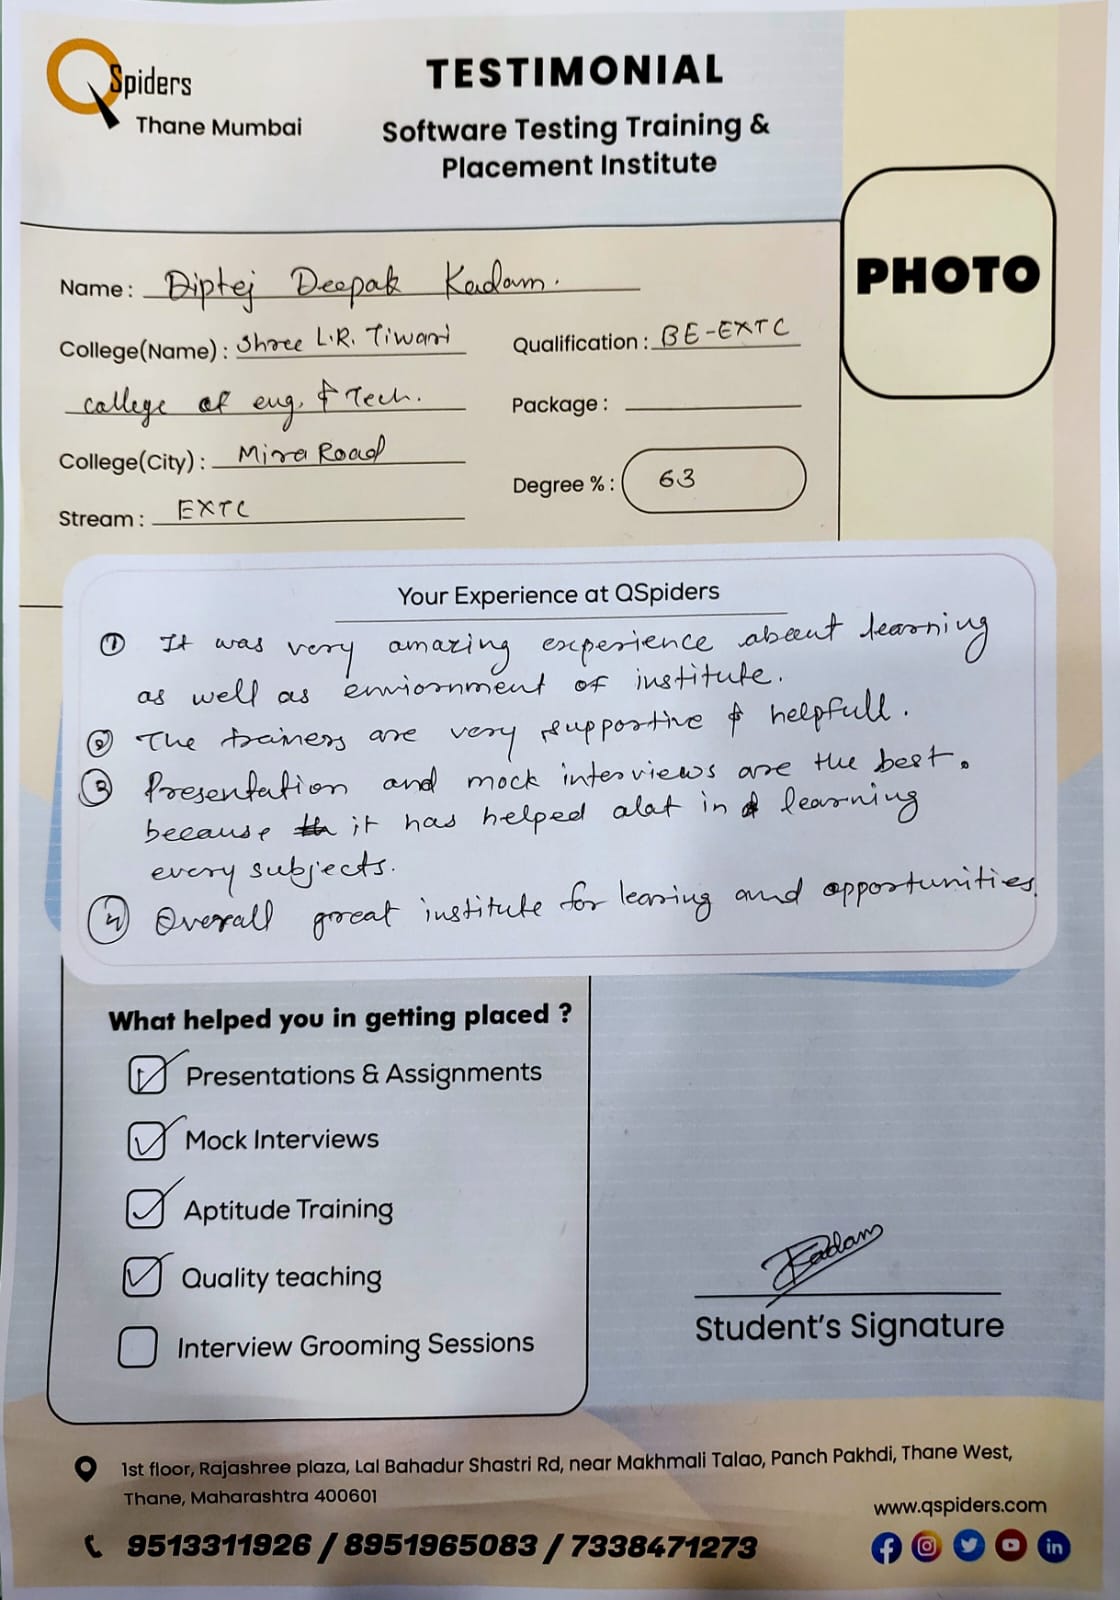 QSpiders
Thane Mumbai
TESTIMONIAL
Software Testing Training &
Placement Institute
PHOTO
Name : Diptej Deepak Kadam.
College(Name) : Shree L.R. Tiwari
college of eng. & Tech.
College(City) : Mira Road
Stream : EXTC
Qualification : BE-EXTC
Package :
Degree % : 63
Your Experience at QSpiders
① It was very amazing experience about learning
as well as enviornment of institute.
② The trainers are very supportive & helpfull.
③ Presentation and mock interviews are the best.
because it has helped alot in learning
every subjects.
④ Overall great institute for learing and opportunities.
What helped you in getting placed ?
Presentations & Assignments
Mock Interviews
Aptitude Training
Quality teaching
Interview Grooming Sessions
Kadam
Student's Signature
1st floor, Rajashree plaza, Lal Bahadur Shastri Rd, near Makhmali Talao, Panch Pakhdi, Thane West,
Thane, Maharashtra 400601
www.qspiders.com
9513311926 / 8951965083 / 7338471273